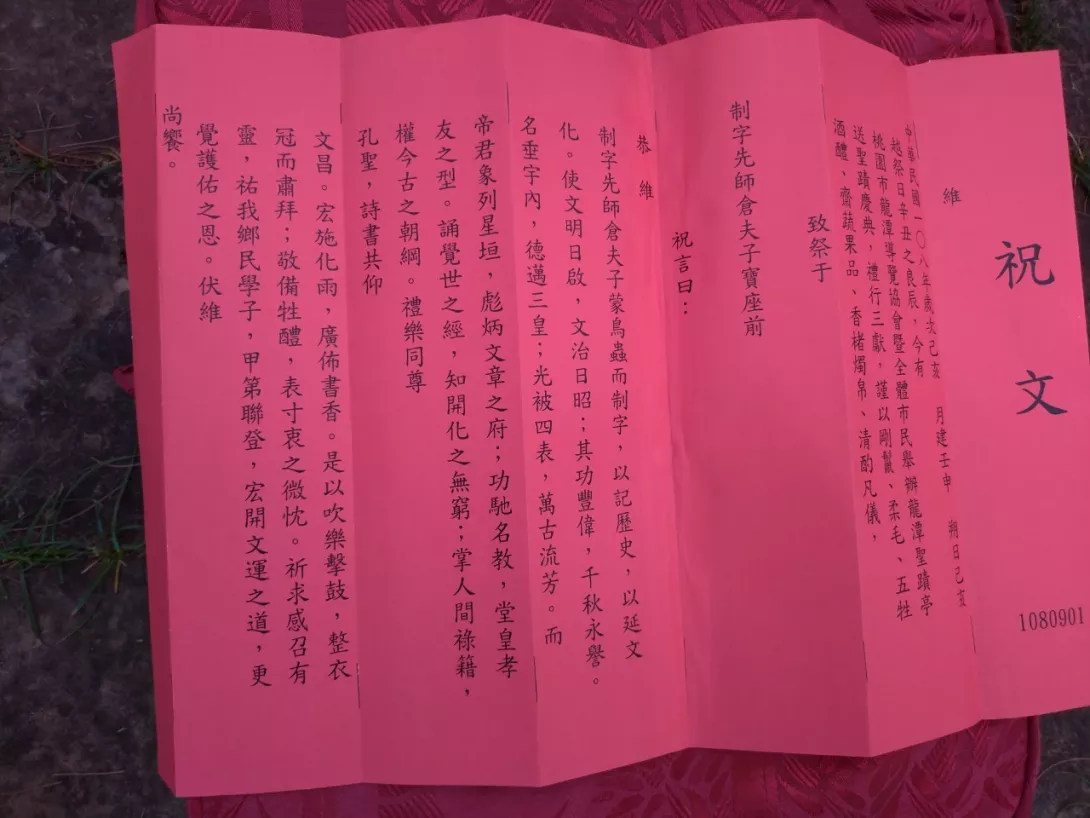 祝文
1080901
維
中華民國一〇八年歲次己亥 月建壬申 朔日己亥
越祭日辛丑之良辰，今有
桃園市龍潭導覽協會暨全體市民舉辦龍潭聖蹟亭
送聖蹟慶典，禮行三獻，謹以剛鬣、柔毛、五牲
酒醴、齋蔬果品、香楮燭帛、清酌凡儀，
致祭于
制字先師倉夫子寶座前
祝言曰：
恭維
制字先師倉夫子蒙鳥蟲而制字，以記歷史，以延文
化。使文明日啟，文治日昭；其功豐偉，千秋永譽。
名垂宇內，德邁三皇；光被四表，萬古流芳。而
帝君象列星垣，彪炳文章之府；功馳名教，堂皇孝
友之型。誦覺世之經，知開化之無窮；掌人間祿籍，
權今古之朝綱。禮樂同尊
孔聖，詩書共仰
文昌。宏施化雨，廣佈書香。是以吹樂擊鼓，整衣
冠而肅拜；敬備牲醴，表寸衷之微忱。祈求感召有
靈，祐我鄉民學子，甲第聯登，宏開文運之道，更
覺護佑之恩。伏維
尚饗。